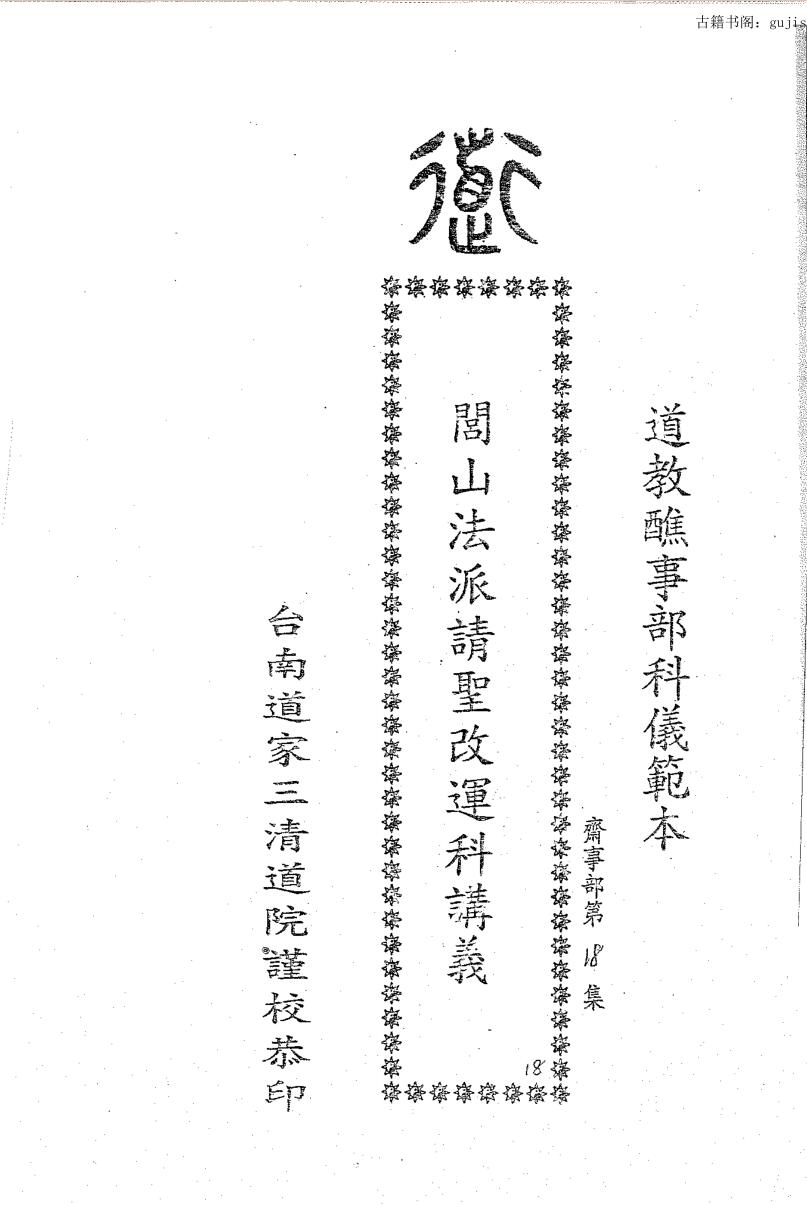 古籍书阁：gujis
道
道教醮事部科儀範本
齋事部第18集
閭山法派請聖改運科講義
18
台南道家三清道院謹校恭印